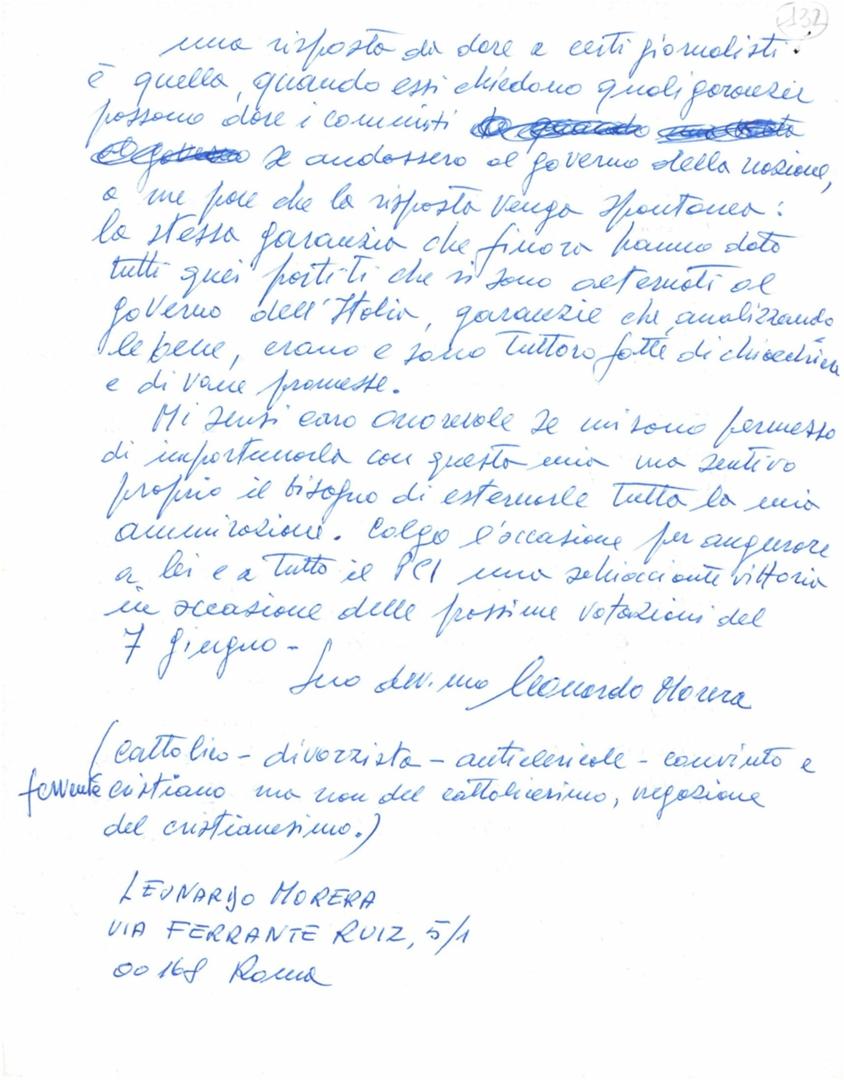 132
una risposta da dare a certi giornalisti
è quella, quando essi chiedono quali garanzie
possono dare i comunisti
se andassero al governo della nazione,
a me pare che la risposta venga spontanea:
la stessa garanzia che finora hanno dato
tutti quei partiti che si sono alternati al
governo dell'Italia, garanzie che, analizzando
le bene, erano e sono tuttora fatte di chiacchiere
e di vane promesse.
Mi scusi caro Onorevole se mi sono permesso
di importunarla con questa mia ma sentivo
proprio il bisogno di esternarle tutta la mia
ammirazione. Colgo l'occasione per augurare
a lei e a tutto il PCI una schiacciante vittoria
in occasione delle prossime votazioni del
7 giugno -
Suo dev.mo Leonardo Morera
(cattolico - divorzista - anticlericale - convinto e
fervente cristiano ma non del cattolicesimo, negazione
del cristianesimo.)
LEONARDO MORERA
VIA FERRANTE RUIZ, 5/1
00168 Roma